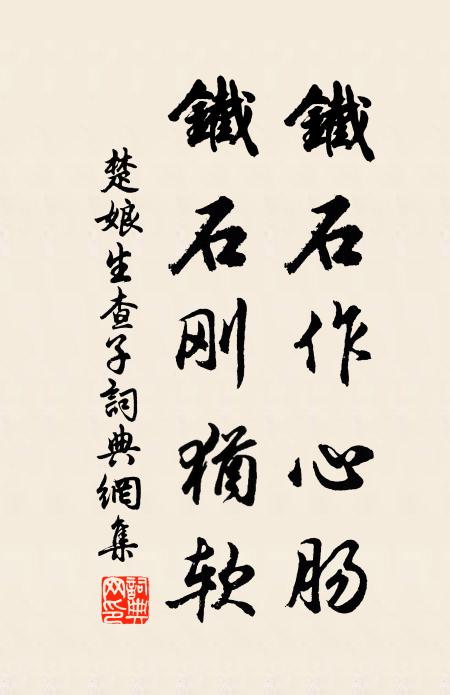 鐵石作心肠
鐵石刚猶软
楚娘生查子詞典網集
詞典网印